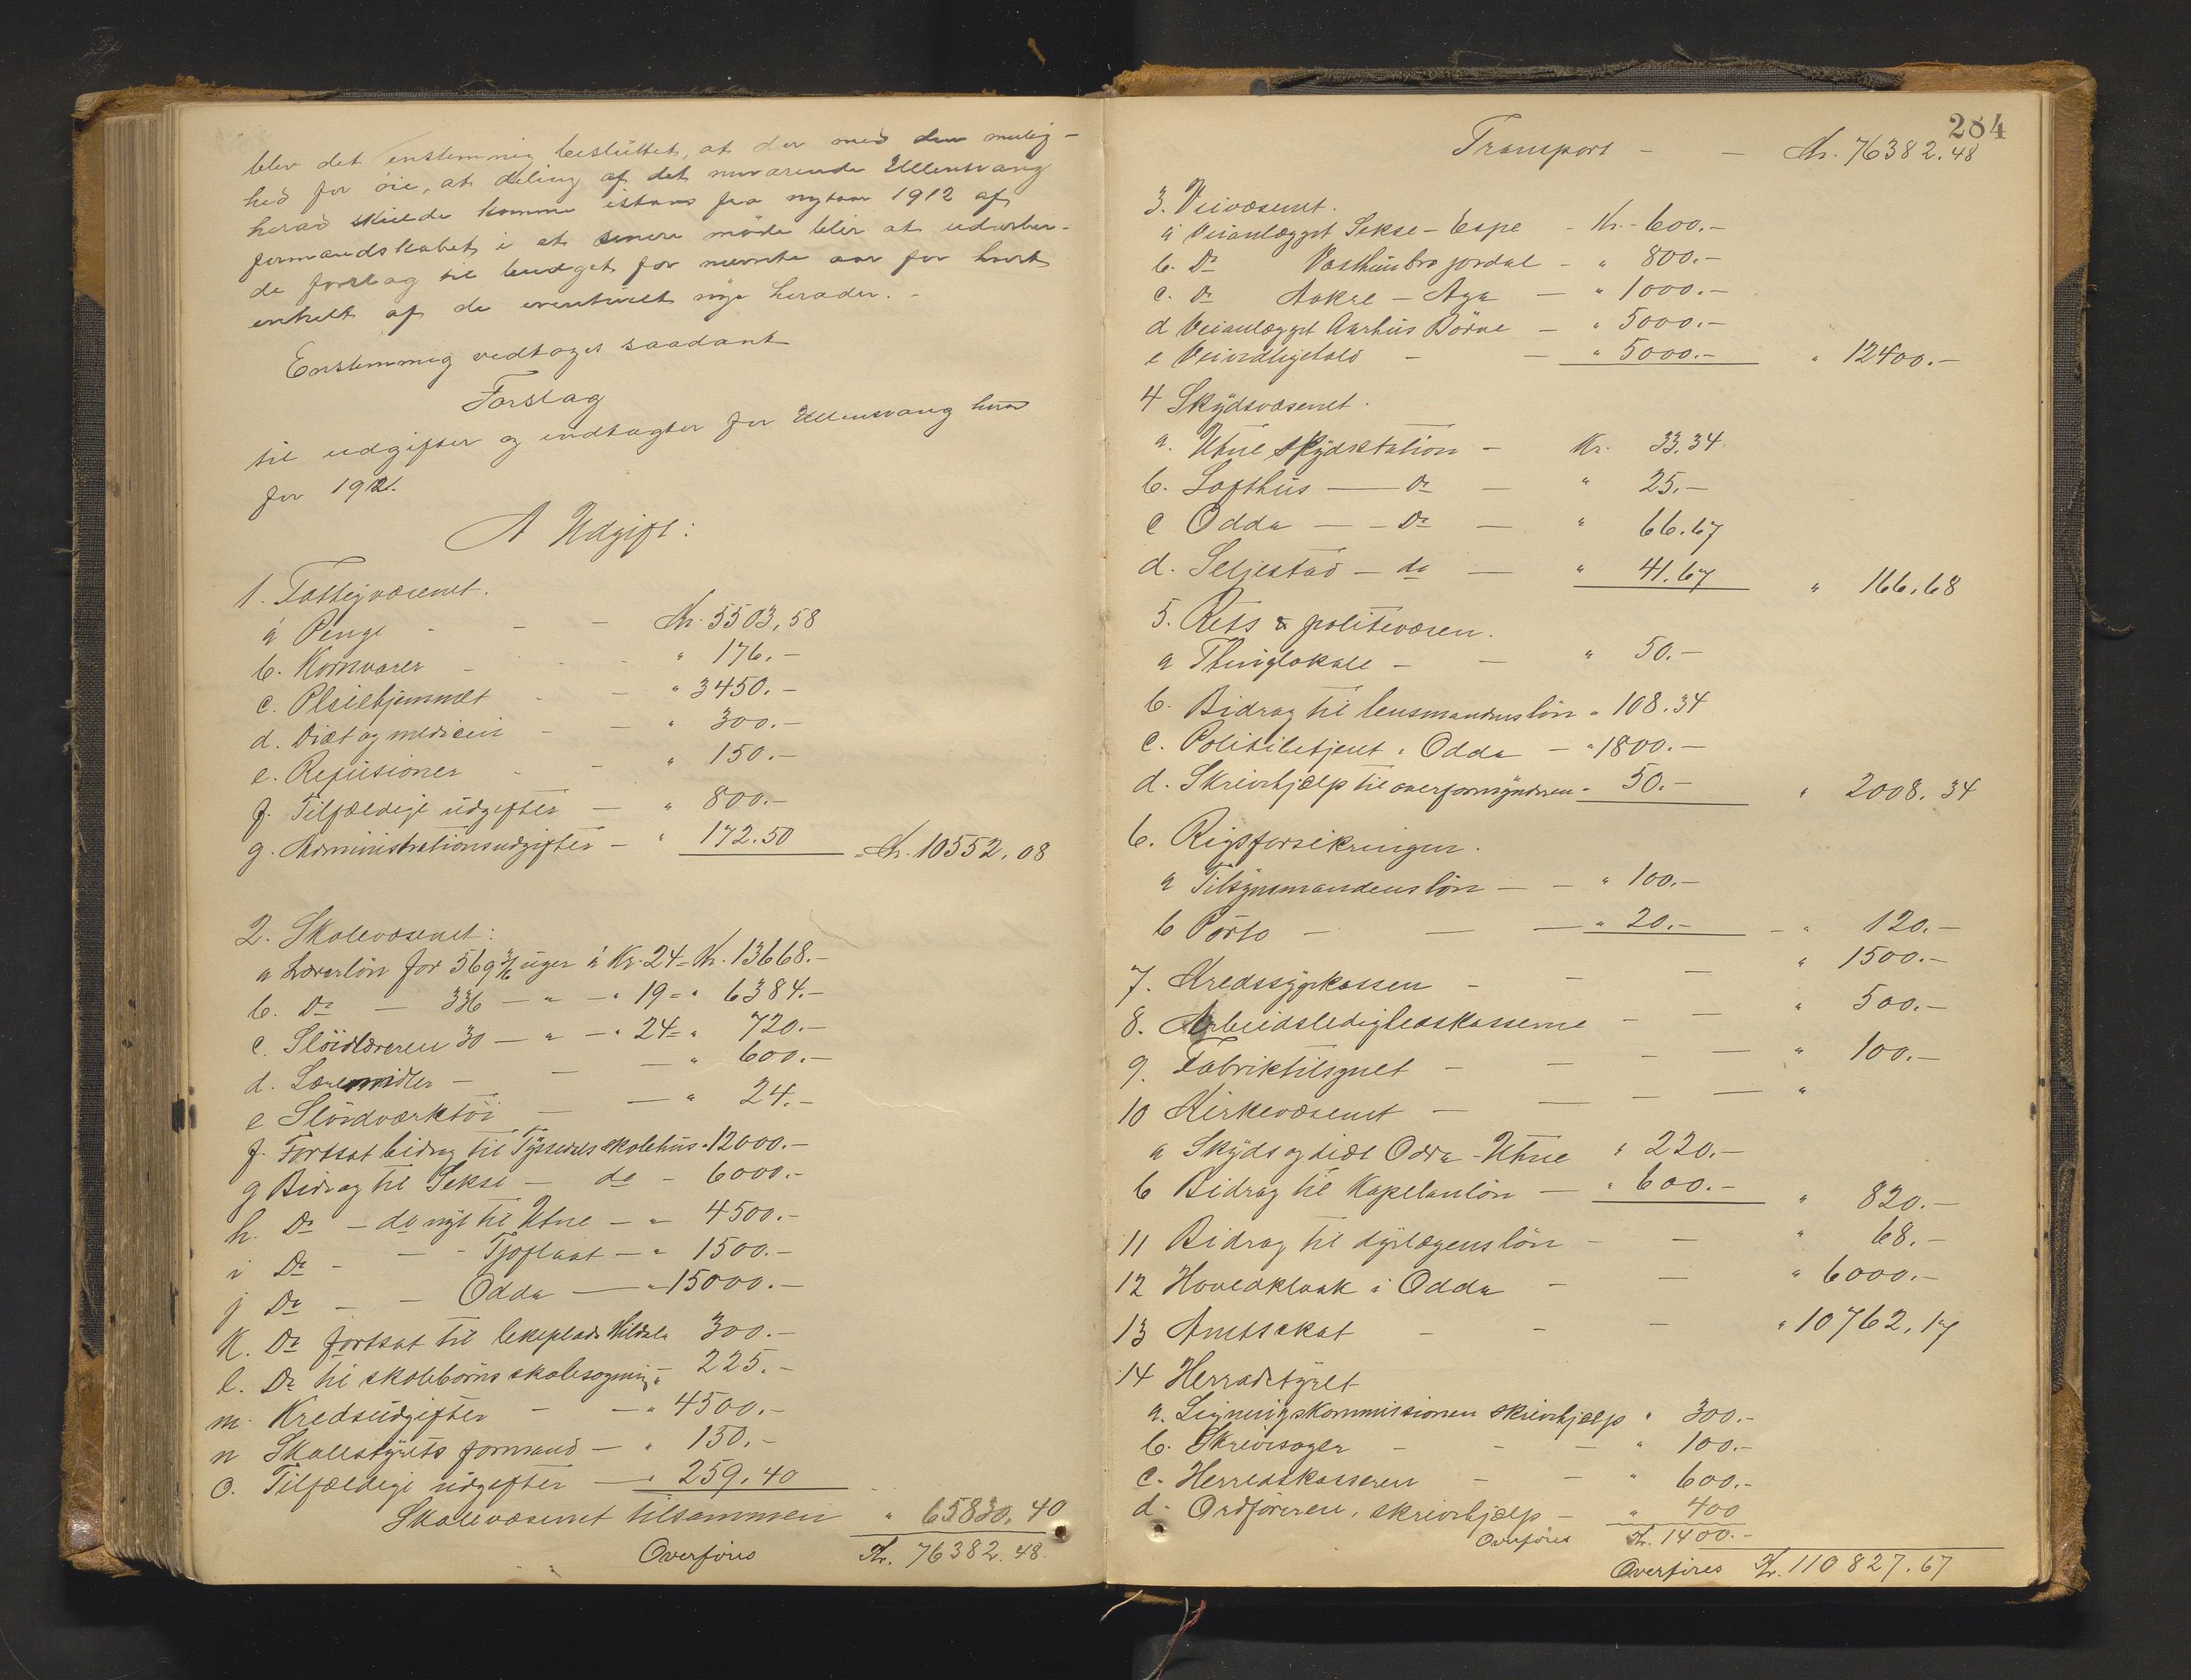 blev det enstemmig besluttet, at der med den mulig-
hed for öie, at deling af det nuværende Ullensvang
herad skulde komme istand fra nytaar 1912 af
formandskabet i et senere möde blir at udarbei-
de forslag til budget for nævnte aar for hvert
enkelt af de eventuelt nye herader. -
Enstemmig vedtoges saadant
Forslag
til udgifter og indtægter for Ullensvang herad
for 1912.
A Udgift:
1. Fattigvæsenet.
a Penge - - - Kr. 5503,58
b. Kornvarer - - - " 176.-
c. Pleiehjemmet - - " 3450.-
d. Diæt og medicin - - " 300.-
e. Refusioner - - " 150.-
f. Tilfældige udgifter - " 800.-
g. Administrationsudgifter - " 172.50 Kr. 10552.08
2. Skolevæsenet:
a Lærerlön for 569 3/6 uger á Kr. 24 = Kr. 13668.-
b. Do - 336 - " - " 19 = " 6384.-
c. Slöidlæreren 30 - " - " 24 = " 720.-
d. Læremidler - - - " 600.-
e Slöidværktöi - - " 24.-
f. Fortsat bidrag til Tyssedals skolehus " 12000.-
g Bidrag til Sekse - do - 6000.-
h. Do - do nyt til Utne - " 4500.-
i Do - - - Tjoflaat - " 1500.-
j Do - - Odda - " 15000.-
k. Do fortsat til lekeplads Hildal " 300.-
l. Do til skolebörns skolesogning " 225.-
m. Kredsudgifter - - " 4500.-
n Skolestyrets formand - " 150.-
o. Tilfældige udgifter - " 259.40
Skolevæsenet tilsammen " 65830.40
Overföres Kr. 76382.48.
284
Transport - - Kr. 76382.48
3. Veivæsenet.
a Veianlægget Sekse - Espe - Kr. 600.-
b. Do Vasthunbro jordal - " 800.-
c. Do Aakre - Aga - " 1000.-
d Veianlægget Aarhus Börve - " 5000.-
e Veivedligehold - - " 5000.- " 12400.-
4 Skydsvæsenet.
a. Utne skydsstation - Kr. 33.34
b. Lofthus - do - " 25.-
c Odda - - Do - " 66.67
d. Seljestad - do - " 41.67 " 166.68
5. Rets & politivæsen.
a Thinglokale - - " 50.-
b. Bidrag til lensmandens lön " 108.34
c. Politibetjent i Odda - " 1800.-
d. Skrivehjælp til overformynderen " 50.- " 2008.34
6. Rigsforsikringen.
a Tilsynsmandens lön - - " 100.-
b Porto - - - " 20.- - " 120.-
7. Kredssygekassen - - - " 1500.-
8. Arbeidsledighedskasserne - - " 500.-
9. Fabriktilsynet - - - - " 100.-
10 Kirkevæsenet - - - - "
a Skyds og diæt Odda - Utne " 220.-
b Bidrag til Kapelanlön - " 600.- " 820.-
11 Bidrag til dyrlægens lön - - " 68.-
12 Hovedkloak i Odda - - " 6000.-
13 Amtsskat - - - " 10762.17
14 Herradstyret
a. Ligningskommissionen skrivehjælp " 300.-
b. Skrivesager - - - " 100.-
c. Herredskasseren - - " 600.-
d. Ordföreren, skrivehjælp - " 400
Overföres Kr. 1400.-
Overföres Kr. 110827.67